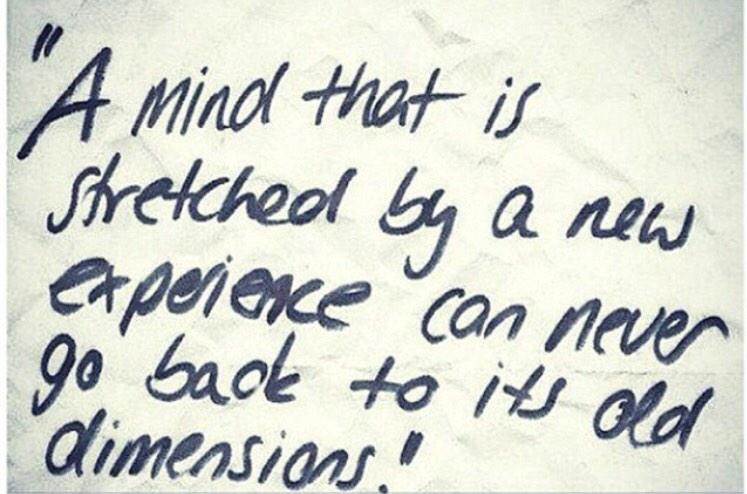 "A mind that is
stretched by a new
experience can never
go back to its old
dimensions."